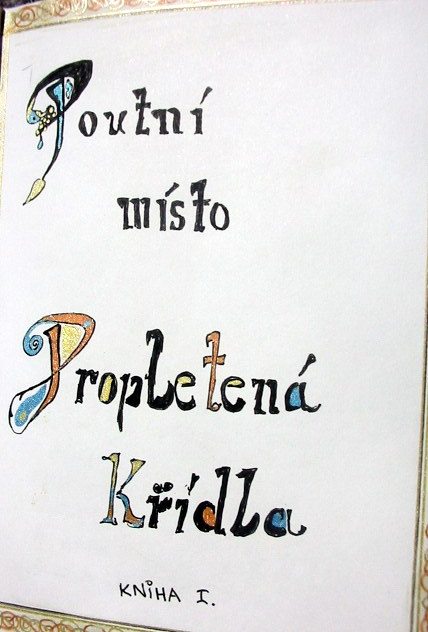 Poutní
místo
Propletená
Křídla
KNIHA I.